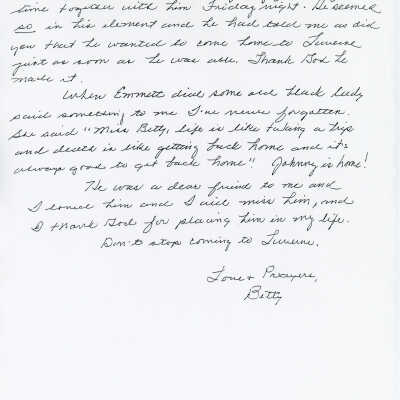 time together with him Friday night. He seemed
so in his element and he had told me as did
you that he wanted to come home to Luverne
just as soon as he was able. Thank God he
made it.
When Emmett died some old black lady
said something to me I've never forgotten.
She said "Miss Betty, life is like taking a trip
and death is like getting back home and its
always good to get back home" Johnny is home!
He was a dear friend to me and
I loved him and I will miss him, and
I thank God for placing him in my life.
Don't stop coming to Luverne.
Love & Prayers,
Betty